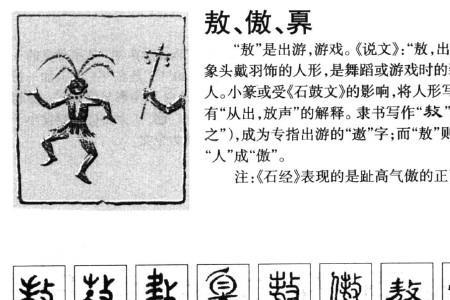 敖、傲、奡
“敖”是出游，游戏。《说文》：“敖，出
象头戴羽饰的人形，是舞蹈或游戏时的
人。小篆或受《石鼓文》的影响，将人形写
有“从出，放声”的解释。隶书写作“敖”
之”），成为专指出游的“遨”字；而“敖”则
“人”成“傲”。
注：《石经》表现的是趾高气傲的正